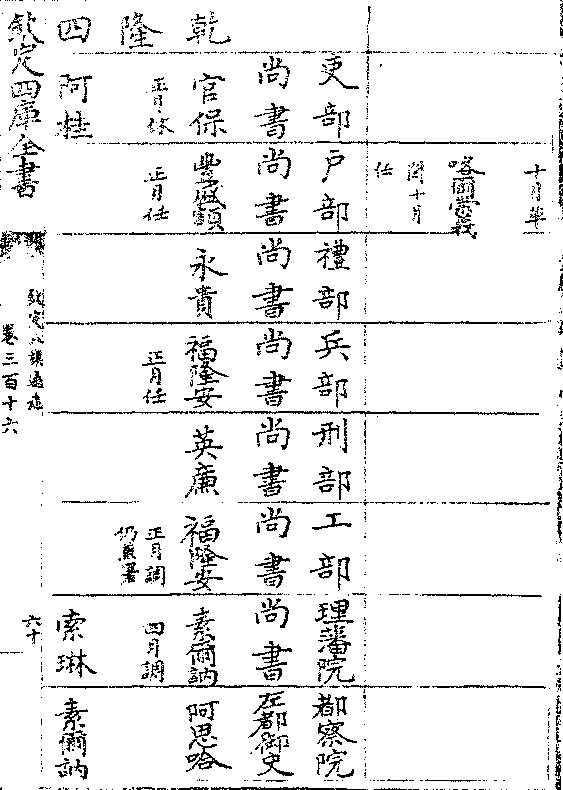 十月卒
喀爾崇義
閏十月
任
吏部 戶部 禮部 兵部 刑部 工部 理藩院 都察院
尚書 尚書 尚書 尚書 尚書 尚書 尚書 左都御史
乾 官保 豐昇額 永貴 福隆安 英廉 福隆安 素爾訥 阿思哈
隆 正月休 正月任 正月任 正月調 四月調
仍兼署
四 阿桂 索琳 素爾訥
欽定四庫全書
欽定八旗通志
卷三百十六
六十